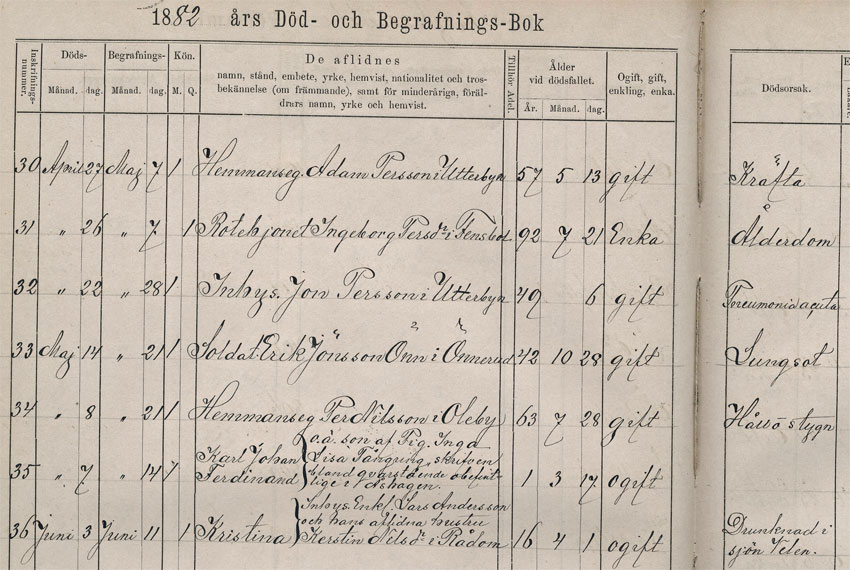 1882 års Död- och Begrafnings-Bok
Inskrifnings-nummer. Döds- Månad. dag. Begrafnings- Månad. dag. Kön. M. Q. De aflidnes namn, stånd, embete, yrke, hemvist, nationalitet och trosbekännelse (om främmande), samt för minderåriga, föräldrars namn, yrke och hemvist. Tillhör Adel. Ålder vid dödsfallet. År. Månad. dag. Ogift, gift, enkling, enka. Dödsorsak.
30 April 27 Maj 7 1 Hemmanseg. Adam Persson i Utterbyn 57 5 13 gift Kräfta
31 " 26 " 7 1 Rotehjonet Ingeborg Persdr i Fensbol 92 7 21 Enka Ålderdom
32 " 22 " 28 1 Inhys. Jon Persson i Utterbyn 49 6 gift Pneumonia acuta
33 Maj 14 " 21 1 Soldat. Erik Jönsson Önn i Önnerud 42 10 28 gift Lungsot
34 " 8 " 21 1 Hemmanseg Per Nilsson i Oleby 63 7 28 gift Håll o stygn
35 " 7 " 14 1 Karl Johan Ferdinand
o.ä. son af Pig. Inga
Lisa Tångring, skrifven
bland qvarstående obefint
lige i Ashagen. 1 3 17 ogift
36 Juni 3 Juni 11 1 Kristina
Inhys. Enkl. Lars Andersson
och hans aflidna hustru
Kerstin Nilsdr i Rådom 16 4 1 ogift
Drunknad i
sjön Velen.